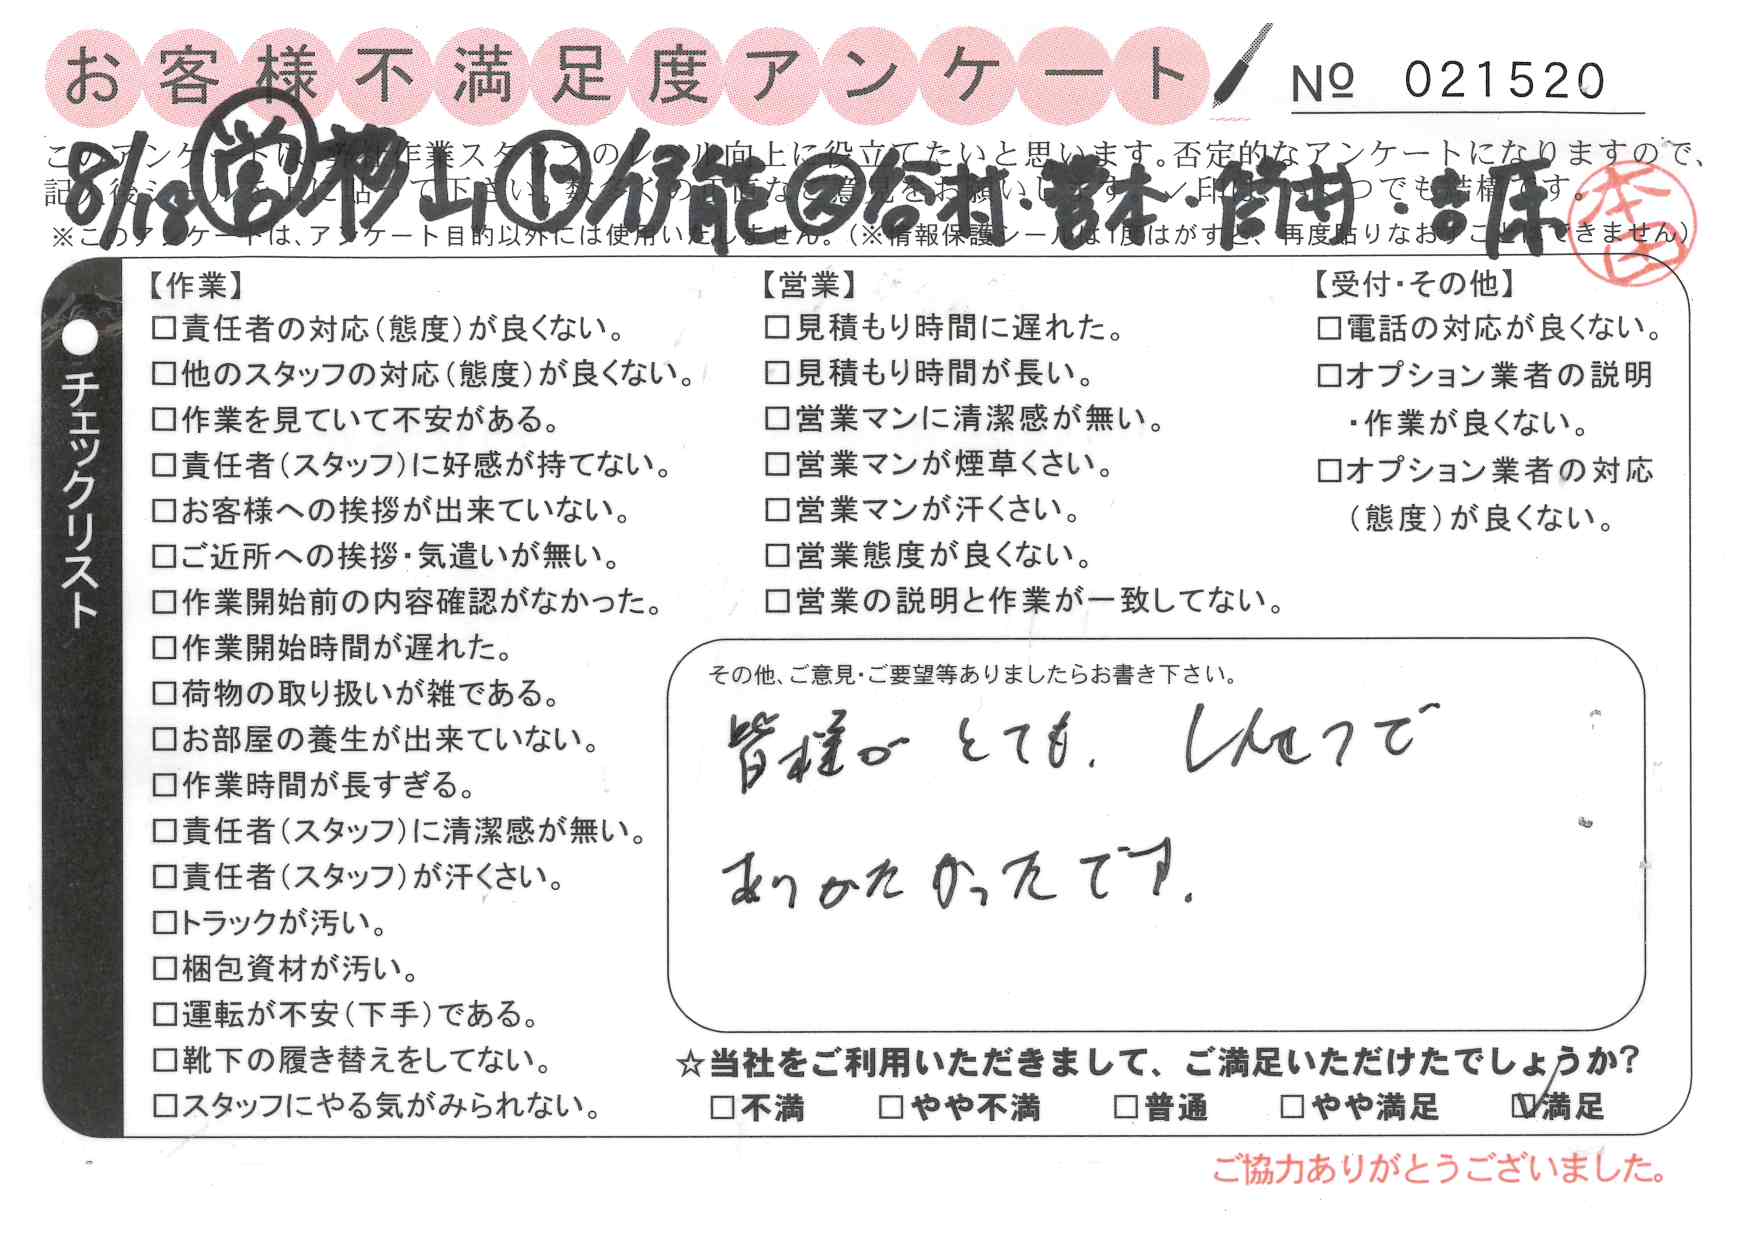 お客様不満足度アンケート
Nº 021520
このアンケートは、弊社作業スタッフのレベル向上に役立てたいと思います。否定的なアンケートになりますので、
8/18 営 杉山 ド 仔能 ス 谷村・菅本・筒井・吉原
※このアンケートは、アンケート目的以外には使用いたしません。(※情報保護シールは1度はがすと、再度貼りなおすことはできません)
チェックリスト
【作業】
□責任者の対応(態度)が良くない。
□他のスタッフの対応(態度)が良くない。
□作業を見ていて不安がある。
□責任者(スタッフ)に好感が持てない。
□お客様への挨拶が出来ていない。
□ご近所への挨拶・気遣いが無い。
□作業開始前の内容確認がなかった。
□作業開始時間が遅れた。
□荷物の取り扱いが雑である。
□お部屋の養生が出来ていない。
□作業時間が長すぎる。
□責任者(スタッフ)に清潔感が無い。
□責任者(スタッフ)が汗くさい。
□トラックが汚い。
□梱包資材が汚い。
□運転が不安(下手)である。
□靴下の履き替えをしてない。
□スタッフにやる気がみられない。
【営業】
□見積もり時間に遅れた。
□見積もり時間が長い。
□営業マンに清潔感が無い。
□営業マンが煙草くさい。
□営業マンが汗くさい。
□営業態度が良くない。
□営業の説明と作業が一致してない。
【受付・その他】
□電話の対応が良くない。
□オプション業者の説明
・作業が良くない。
□オプション業者の対応
(態度)が良くない。
その他、ご意見・ご要望等ありましたらお書き下さい。
皆様が とても、しんせつで
ありがたかったです。
☆当社をご利用いただきまして、ご満足いただけたでしょうか?
□不満 □やや不満 □普通 □やや満足 ☑満足
ご協力ありがとうございました。